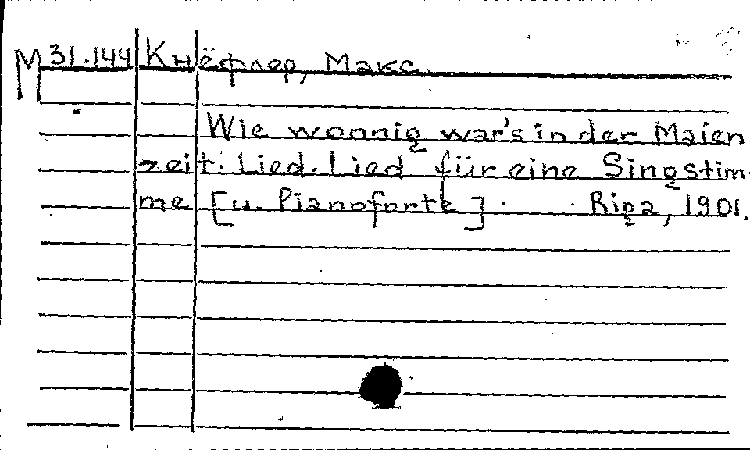 М 31.144 Кнёфлер, Макс.
Wie wonnig war's in der Maien
zeit: Lied. Lied für eine Singstim-
me [u. Pianoforte]. Riga, 1901.